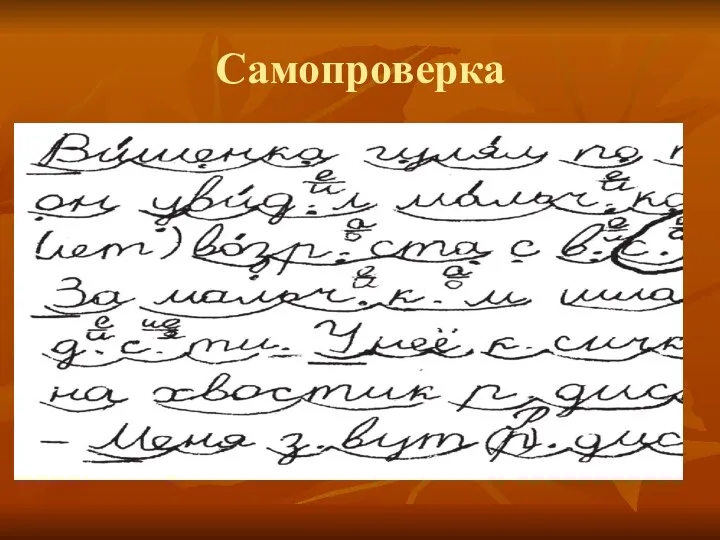 Самопроверка
Вишенка гулял по
он увид.л мальч.ка
(лет) возр.ста с в.с.
За мальч.к.м шла
д.с.ти. У неё к.сичк
на хвостик п.дис
– Меня з.вут (Р).дис